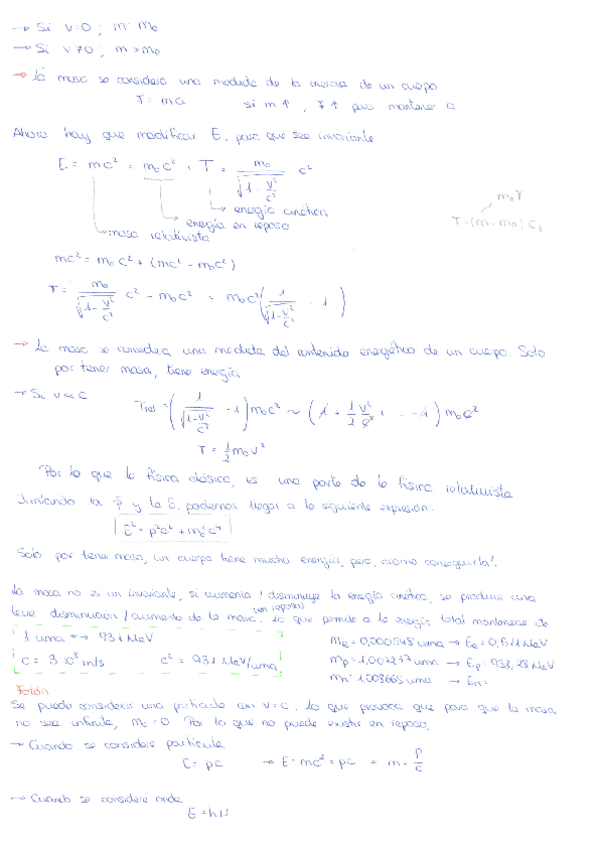 → Si v=0 ; m=m₀
→ Si v≠0 ; m>m₀
→ La masa se considera una medida de la inercia de un cuerpo
F = ma si m↑, F↑ para mantener a
Ahora hay que modificar E, para que sea invariante
E = mc² = m₀c² + T = m₀/√(1-v²/c²) c²
energía cinética
energía en reposo
masa relativista
m₀γ
T=(m-m₀)c²
mc² = m₀c² + (mc² - m₀c²)
T = m₀/√(1-v²/c²) c² - m₀c² = m₀c² (1/√(1-v²/c²) - 1)
→ La masa se considera una medida del contenido energético de un cuerpo. Solo
por tener masa, tiene energía
→ Si v<<c T_rel = (1/√(1-v²/c²) - 1) m₀c² ~ (1 + 1/2 v²/c² + ... -1) m₀c²
T = 1/2 m₀v²
Por lo que la física clásica, es una parte de la física relativista
Juntando la p y la E, podemos llegar a la siguiente expresión:
E² = p²c² + m₀²c⁴
Solo por tener masa, un cuerpo tiene mucha energía, pero, ¿cómo conseguirla?
La masa no es un invariante, si aumenta / disminuye la energía cinética, se produce una
leve disminución / aumento de la masa (en reposo), lo que permite a la energía total mantenerse
1 uma ↔ 931 MeV
c = 3·10⁸ m/s c² = 931 MeV/uma
m_e = 0,000548 uma → E_e = 0,511 MeV
m_p = 1,007277 uma → E_p = 938,28 MeV
m_n = 1,008665 uma → E_n =
Fotón
Se puede considerar una partícula con v=c. Lo que provoca que para que la masa
no sea infinita, m₀=0. Por lo que no puede existir en reposo.
→ Cuando se considera partícula
E = pc → E = mc² = pc → m = p/c
→ Cuando se considera onda
E = hν